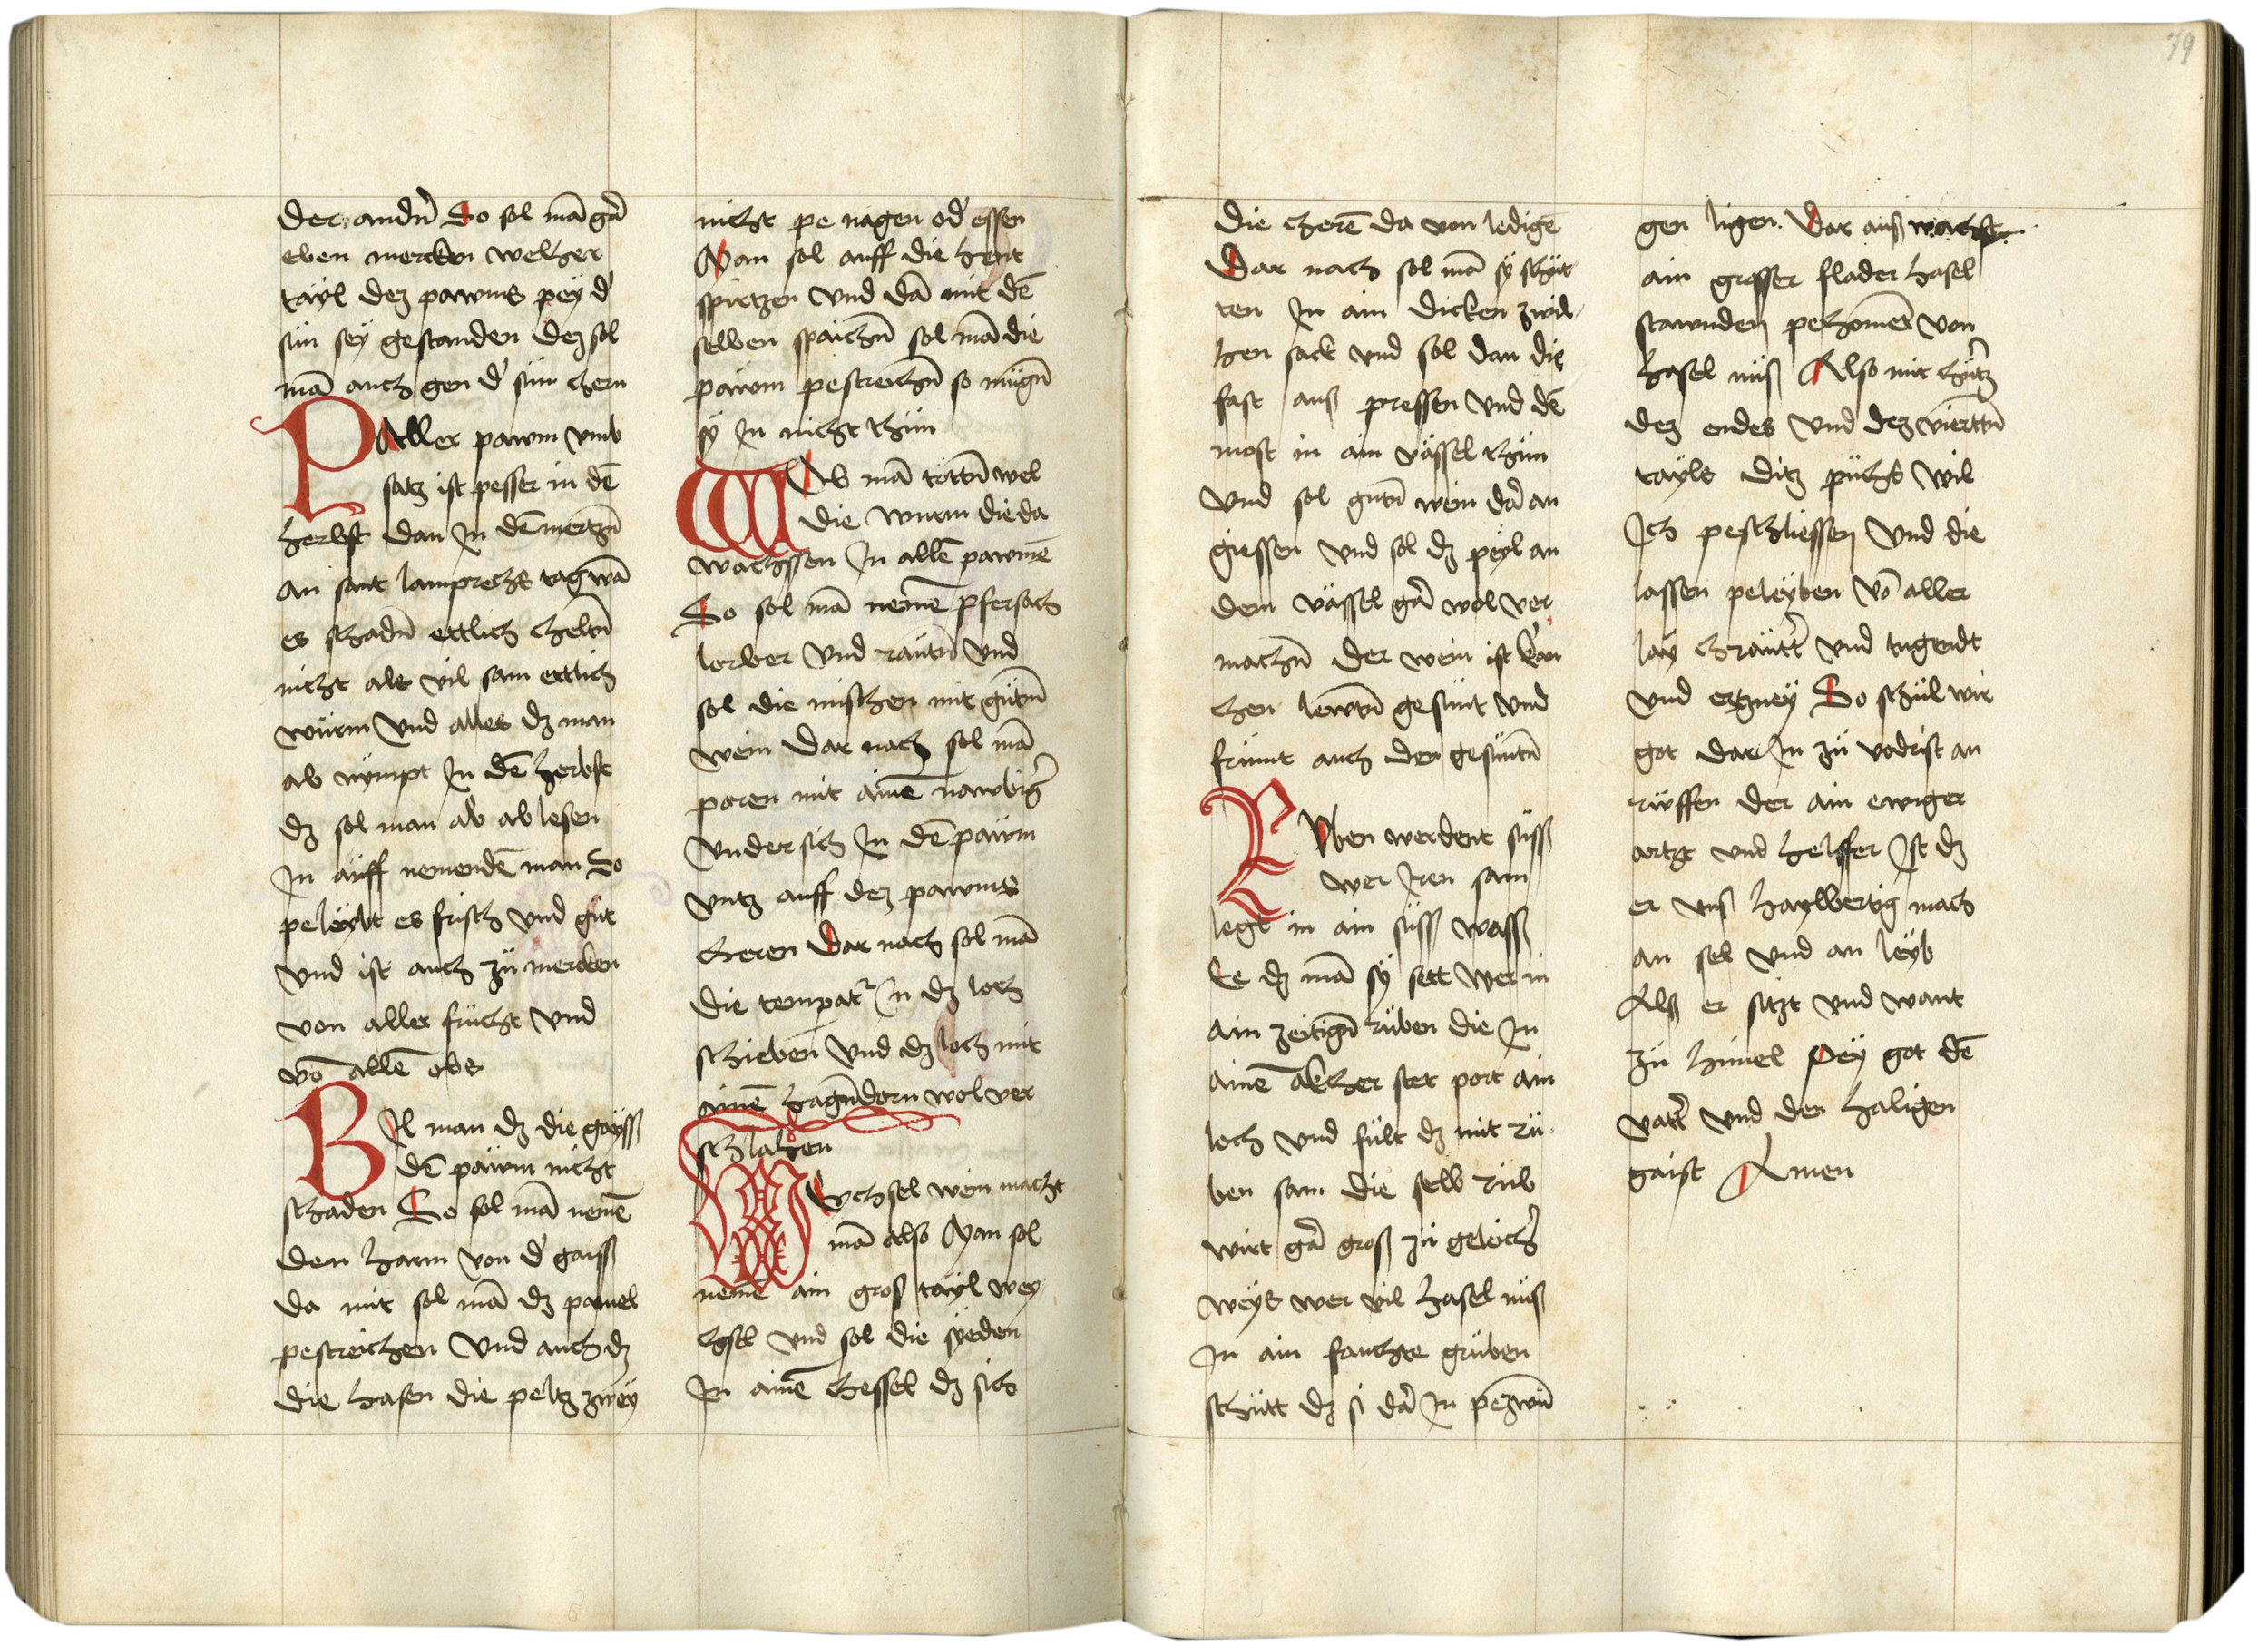 79
der andn̄ So sol mā gā
eben mercken welher
tayl dez pawms pey d'
sün sey gestanden dez sol
mā auch gen d' sün chern
P Aller pawm vmb
satz ist pesser in dē
herbst dan In dē mertzn̄
an sant lamprechts tag wā
es schadn̄ ettlich cheltn̄
nicht als vil sam ettlich
würm vnd alles dz man
ab nympt In dē herbst
dz sol man ab ab lesen
In auff nemendē man So
peleybt es frisch vnd güt
vnd ist auch zü mercken
von aller frücht vnd
vō allē obs
B Il man dz die gayss
dē pawm nicht
schaden So sol mā nemē
den harm von d' gaiss
da mit sol mā dz pamel
pestreichen vnd auch dz
die hasen die peltz zwey
nicht pe nagen od' essen
Man sol auff die hent
spirtzen vnd dā mit dē
selben spaichn̄ sol mā die
pawm pestreichn̄ so mügn̄
sy In nicht thün
W Ob mā töttn̄ wel
die wurm die da
wachssen In allē pawmē
So sol mā nemē pfersach
lorber vnd rautn̄ vnd
sol die mischen mit gutn̄
wein dar nach sol mā
poren mit ainē nawbig'
vndersich In dē pawm
vntz auff dez pawms
cheren dar nach sol mā
die tempat' In dz loch
schieben vnd dz loch mit
ainē hagn̄dorn wol ver
schlahen
W Eychsel wein macht
mā also Man sol
nemē ain gros tayl wey
chsel vnd sol die syeden
In ainē chessel dz sich
die cherē da von ledigē
Dar nach sol mā sy schüt
ten In ain dicken zwil
hen sack vnd sol dan die
fast aus pressen vnd dē
most in ain vässel thün
vnd sol gutn̄ wein dā an
giessen vnd sol dz peyl an
dem vässel gā wol ver
machn̄ der wein ist kran
chen lewtn̄ gesunt vnd
frümt auch den gesuntn̄
R Vben werdent süss
wer Iren sam
legt in ain süss wass
te dz mā sy sett wer in
ain zeitign̄ rüben die In
ainē akcher stet port ain
loch vnd fült dz mit rü
ben sam die selb rüb
wirt gā gros zü geleich'
weys wer vil hasel nus
In ain fauchte grüben
schütt dz si dā In pezwn̄
gen ligen. Dar aus wachst
ain grosser flader hasel
stawnden pechomēs von
hasel nüs Also mit chürtz
dez endes vnd dez vierttn̄
tayls ditz püchs wil
Ich peschliessen vnd die
lassen peleyben vō aller
lay chräutt' vnd tugendt
vnd ertzney So schül wir
got dar In zü vodrist an
rüffen der ain ewiger
artzt vnd helffer Ist dz
er vns haylbertig mach
an sel vnd an leyb
Als er sitzt vnd want
zü himel Pey got dē
vatt' vnd den haligen
gaist Amen